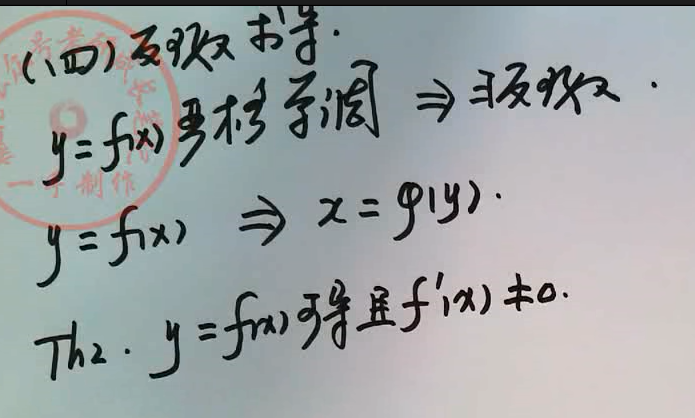 (四)反函数求导.
y=f(x)严格单调 ⇒ ∃反函数.
y=f(x) ⇒ x=φ(y).
Th2. y=f(x)可导且f'(x)≠0.
一手制作